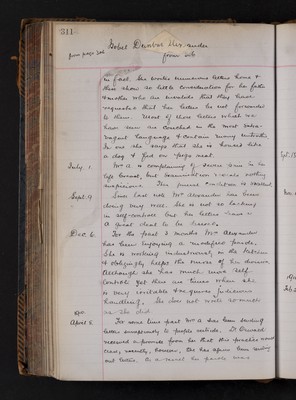 311
from page 306
Isobel Dewar Alexander
from 306
in fact. She writes numerous letters home &
these show so little consideration for her father
& mother who are invalids that they have
requested that her letters be not forwarded
to them. Most of those letters which we
have seen are couched in the most extra-
vagant language & contain many untruths.
In one she says that she is housed like
a dog & fed on hogs meat.
July 1. Mrs A is complaining of some pain in her
left breast, but examination reveals nothing
suspicious. This general condition is excellent.
Sept. 9 Since last note Mrs Alexander has been
doing very well. She is not so lacking
in self-control but her letters have
a great deal to be desired.
Dec. 6. For the past 3 months Mrs Alexander
has been enjoying a modified parole.
She is working industriously in the kitchen
& obligingly helps the nurse of her division
Although she has much more self-
control yet there are times when she
is very irritable & requires judicious
handling. She does not write so much
as she did.
April 5. For some time past Mrs A has been sending
letters surreptitiously to people outside. Dr
received a promise from her that this practice would
cease, recently, however, she has again been sending
out letters. As a result her parole was